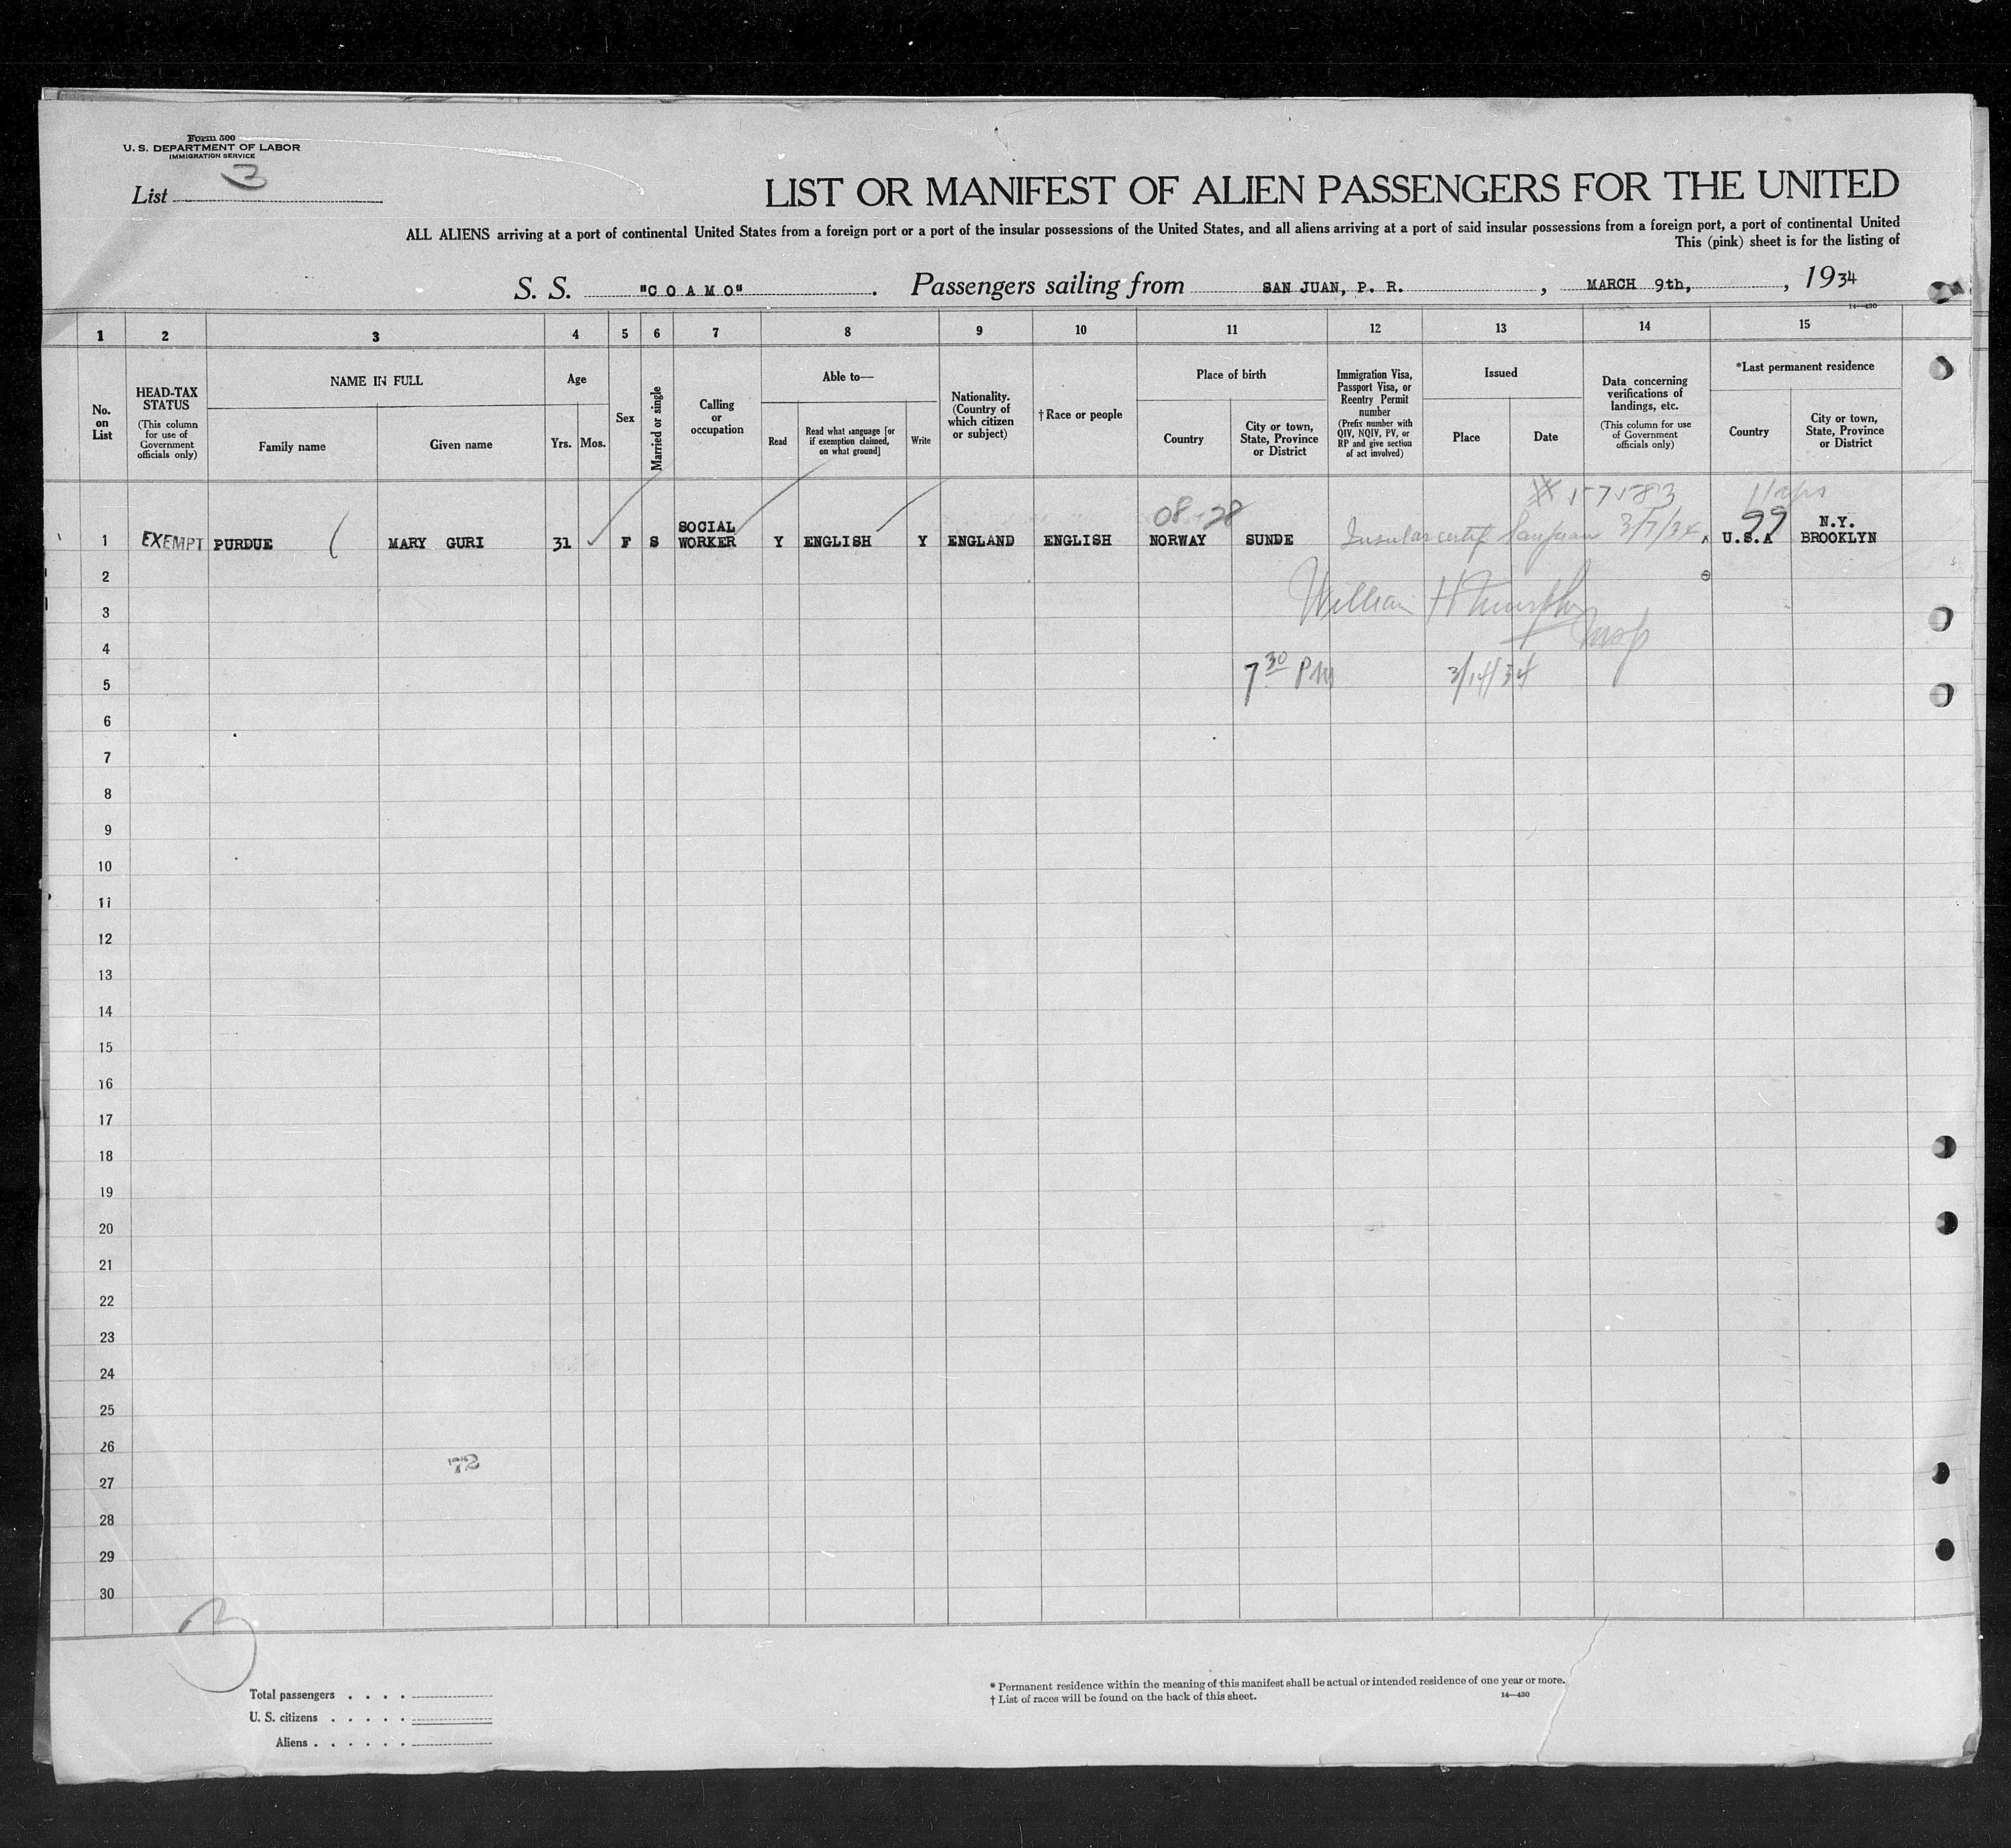 Form 500
U. S. DEPARTMENT OF LABOR
IMMIGRATION SERVICE
List 3
LIST OR MANIFEST OF ALIEN PASSENGERS FOR THE UNITED
ALL ALIENS arriving at a port of continental United States from a foreign port or a port of the insular possessions of the United States, and all aliens arriving at a port of said insular possessions from a foreign port, a port of continental United
This (pink) sheet is for the listing of
S. S. "COAMO" . Passengers sailing from SAN JUAN, P. R. , MARCH 9th, , 1934
14—430
1 2 3 4 5 6 7 8 9 10 11 12 13 14 15
No. on List
HEAD-TAX STATUS (This column for use of Government officials only)
NAME IN FULL
Family name
Given name
Age
Yrs. Mos.
Sex
Married or single
Calling or occupation
Able to—
Read
Read what language [or if exemption claimed, on what ground]
Write
Nationality. (Country of which citizen or subject)
†Race or people
Place of birth
Country
City or town, State, Province or District
Immigration Visa, Passport Visa, or Reentry Permit number (Prefix number with QIV, NQIV, PV, or RP and give section of act involved)
Issued
Place
Date
Data concerning verifications of landings, etc. (This column for use of Government officials only)
*Last permanent residence
Country
City or town, State, Province or District
08-28 157583
1 EXEMPT PURDUE MARY GURI 31 F S SOCIAL WORKER Y ENGLISH Y ENGLAND ENGLISH NORWAY SUNDE Insular certif San Juan 3/7/34 U.S.A 99 N.Y. BROOKLYN
2
3 William H Murphy
4 Insp
5 7 30 PM 3/14/34
6
7
8
9
10
11
12
13
14
15
16
17
18
19
20
21
22
23
24
25
26
72
27
28
29
30
3
Total passengers . . . .
U. S. citizens . . . . .
Aliens . . . . . .
* Permanent residence within the meaning of this manifest shall be actual or intended residence of one year or more.
† List of races will be found on the back of this sheet.
14—430